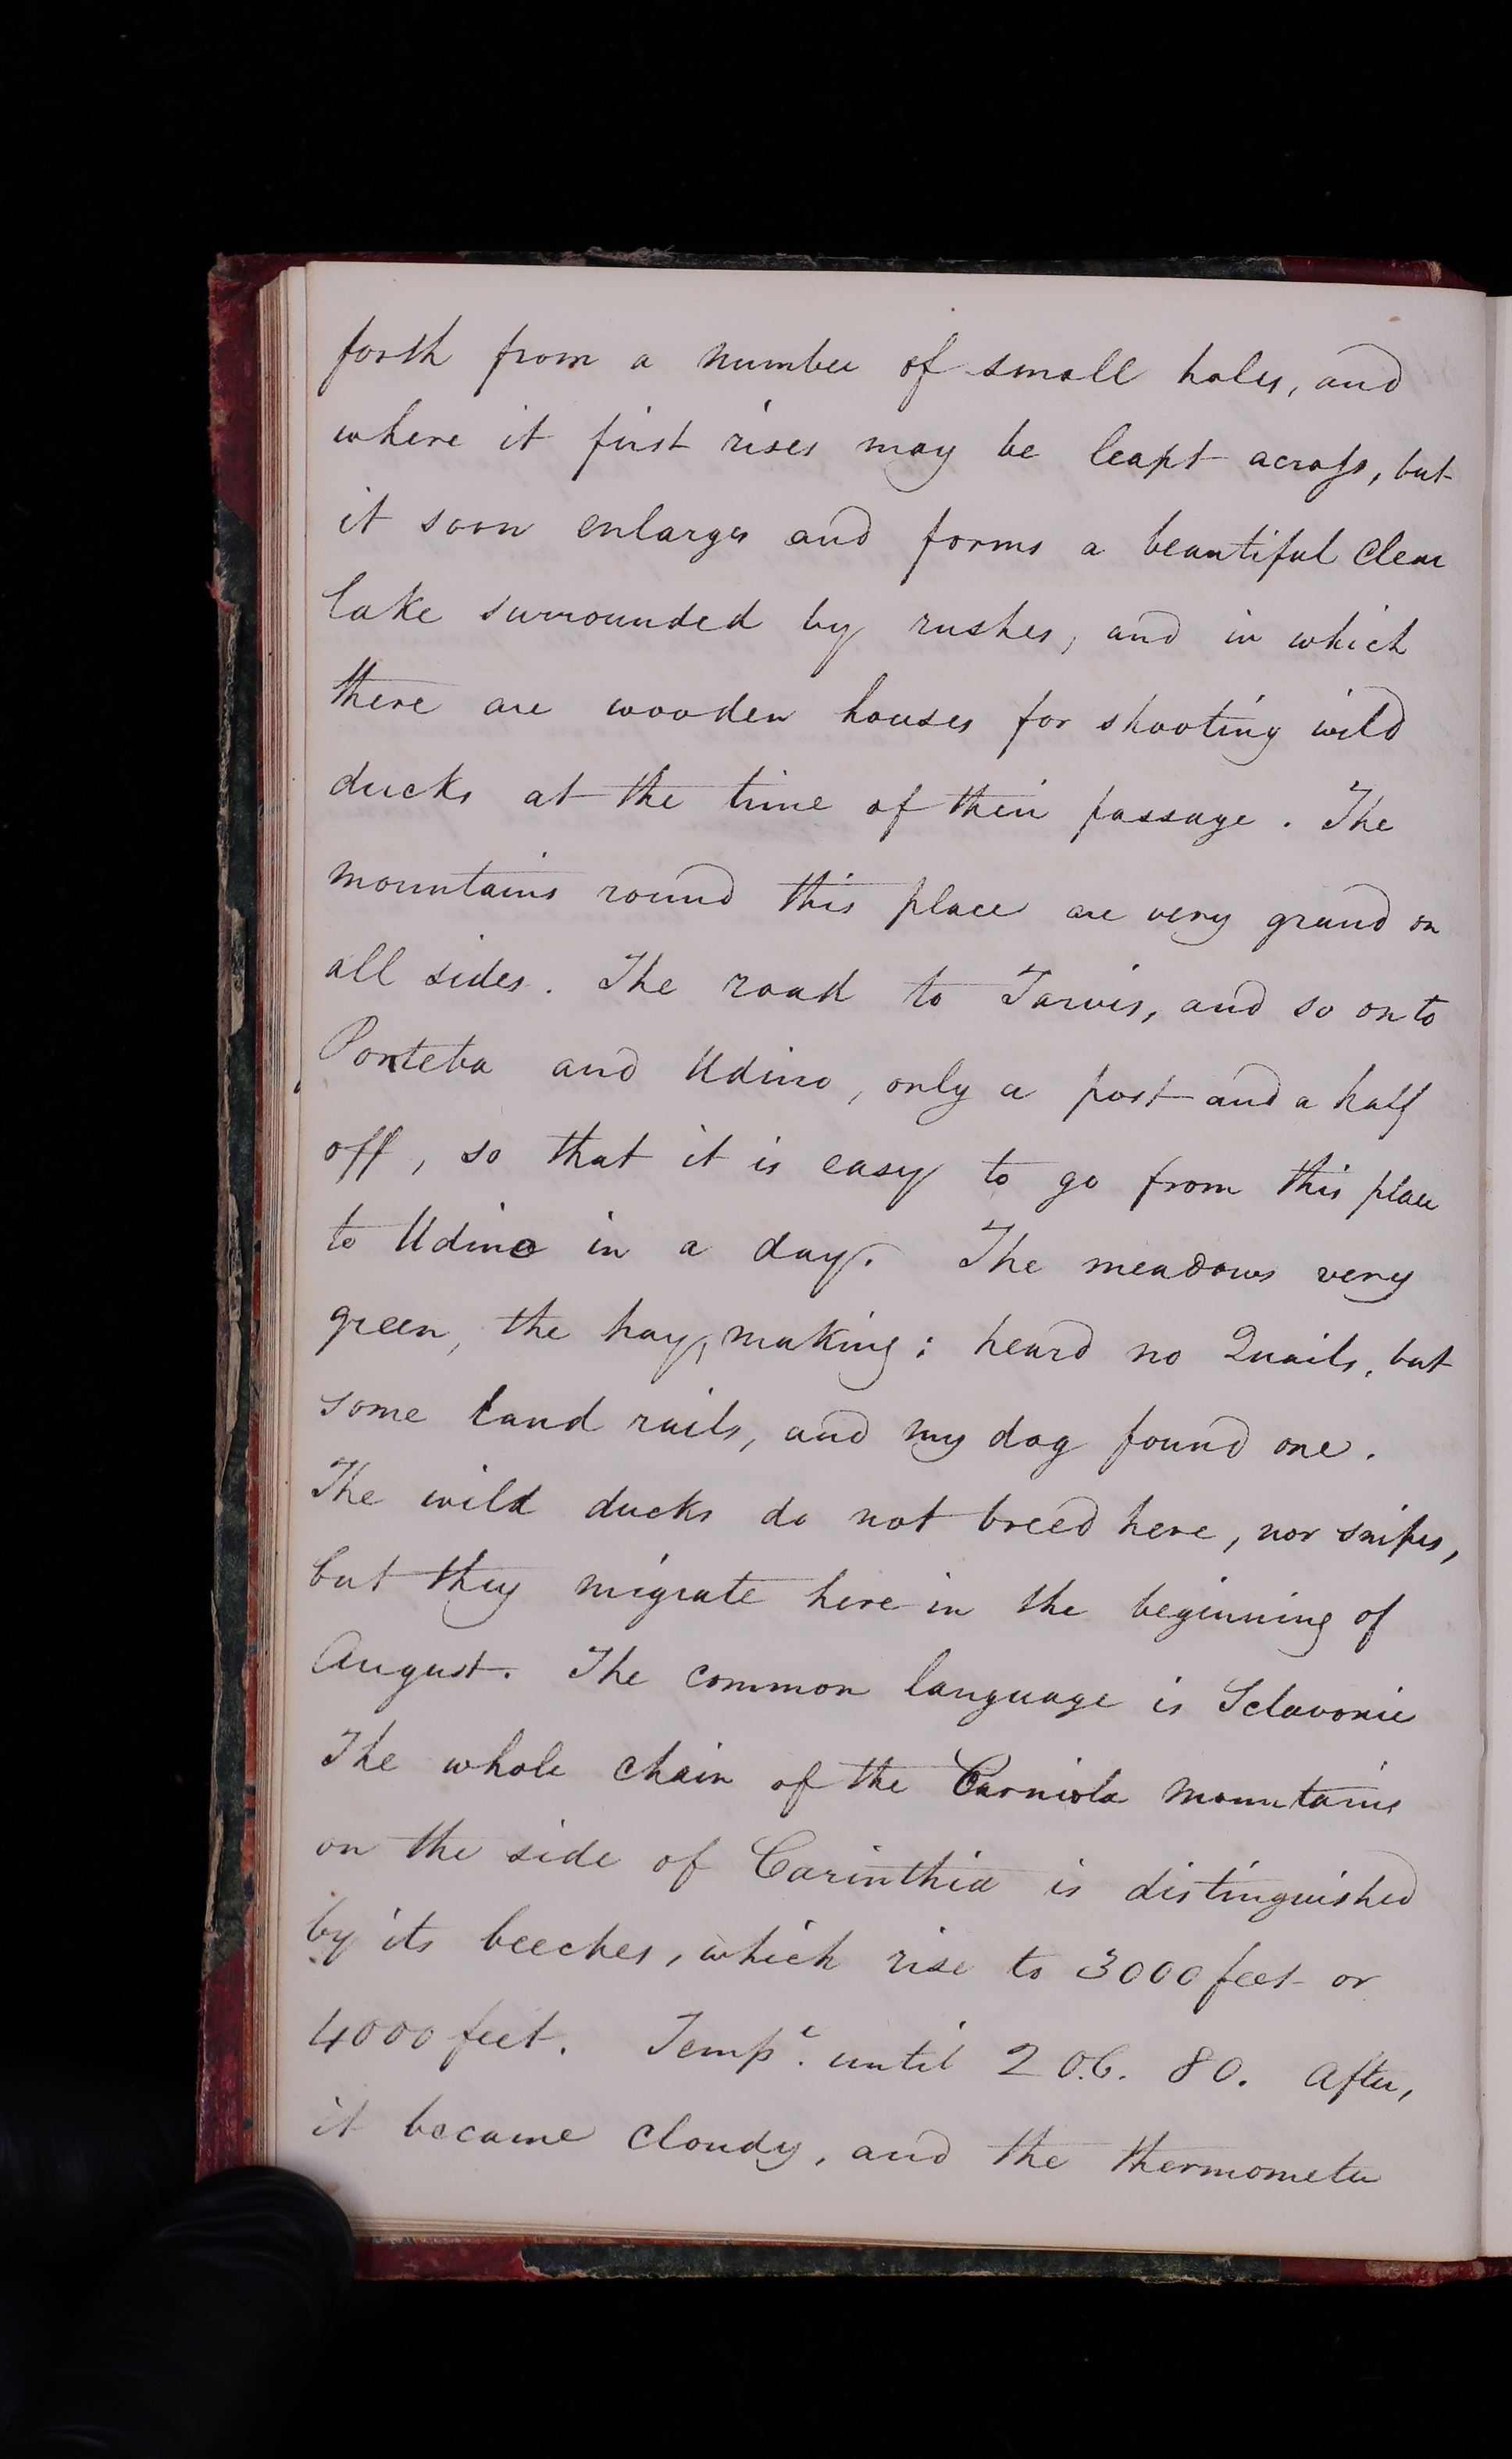 forth from a number of small holes, and
where it first rises may be leapt across, but
it soon enlarges and forms a beautiful clear
lake surrounded by rushes, and in which
there are wooden houses for shooting wild
ducks at the time of their passage. The
mountains round this place are very grand on
all sides. The road to Tarvis, and so on to
Ponteba and Udino, only a post and a half
off, so that it is easy to go from this place
to Udino in a day. The meadows very
green, the hay, making; heard no Quails, but
some land rails, and my dog found one.
The wild ducks do not breed here, nor snipes,
but they migrate here in the beginning of
August. The common language is Sclavonic
The whole chain of the Carniola mountains
on the side of Carinthia is distinguished
by its beeches, which rise to 3000 feet or
4000 feet. Temp.e until 2 O.C. 80. After,
it became cloudy, and the thermometer